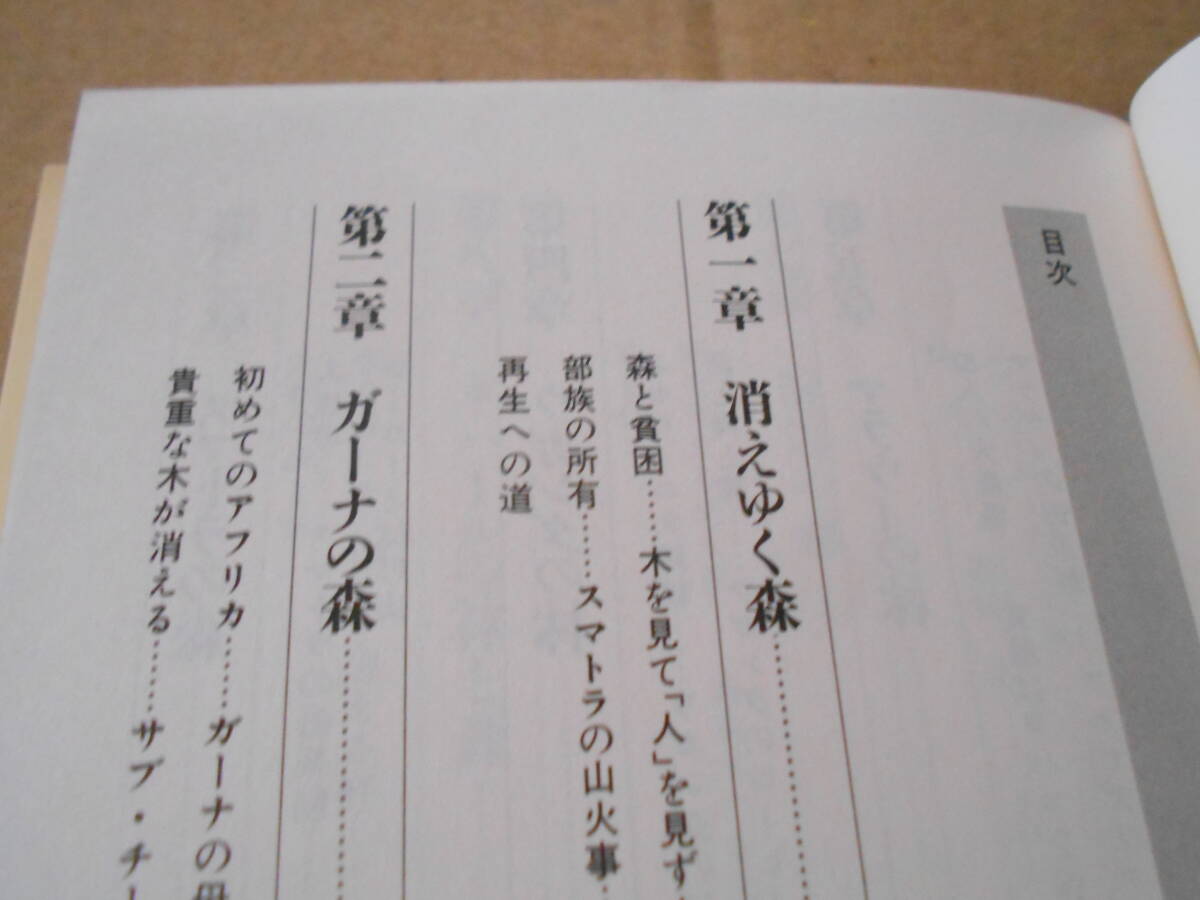 目次
第一章　消えゆく森…………
森と貧困………木を見て「人」を見ず
部族の所有………スマトラの山火事…
再生への道
第二章　ガーナの森…………
初めてのアフリカ………ガーナの母
貴重な木が消える………サブ・チー